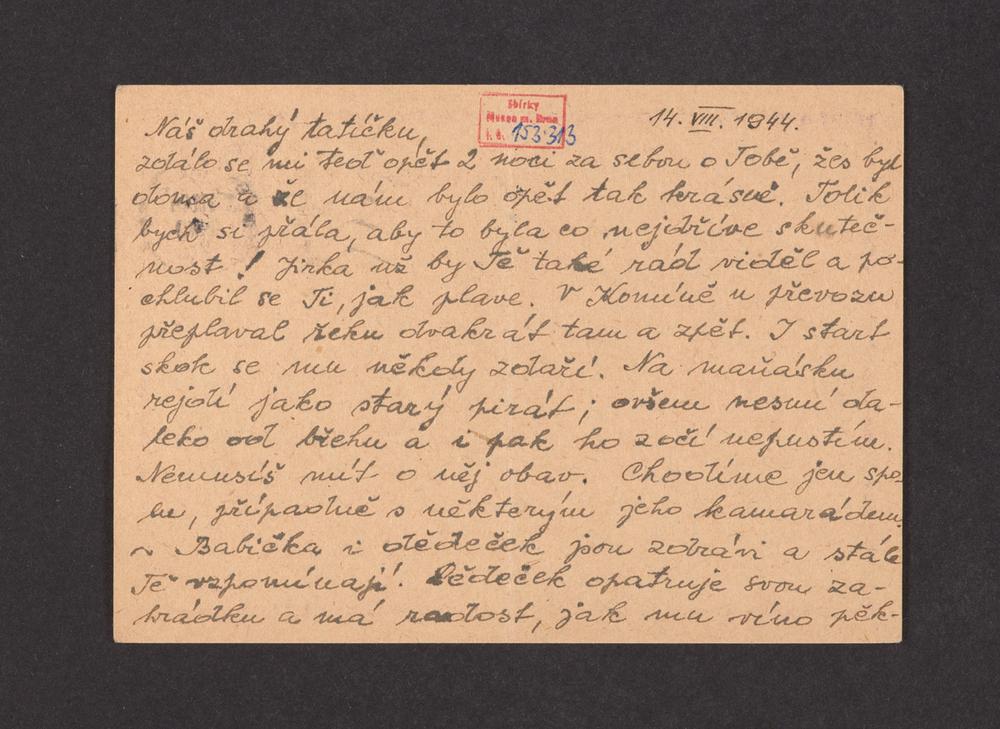 Sbírky
Musea m. Brna
i. č. 153.313
14. VIII. 1944.
Náš drahý tatíčku,
zdálo se mi teď opět 2 noci za sebou o Tobě, žes byl
doma a že nám bylo opět tak krásně. Tolik
bych si přála, aby to byla co nejdříve skuteč-
nost! Jirka už by Tě také rád viděl a po-
chlubil se Ti, jak plave. V Komíně u převozu
přeplaval řeku dvakrát tam a zpět. I start
skok se mu někdy zdaří. Na maňásku
rejdí jako starý pirát; ovšem nesmí da-
leko od břehu a i pak ho z očí nepustím.
Nemusíš mít o něj obav. Chodíme jen spo-
lu, případně s některým jeho kamarádem.
~ Babička i dědeček jsou zdrávi a stále
Tě vzpomínají. Dědeček opatruje svou za-
hrádku a má radost, jak mu víno pěk-